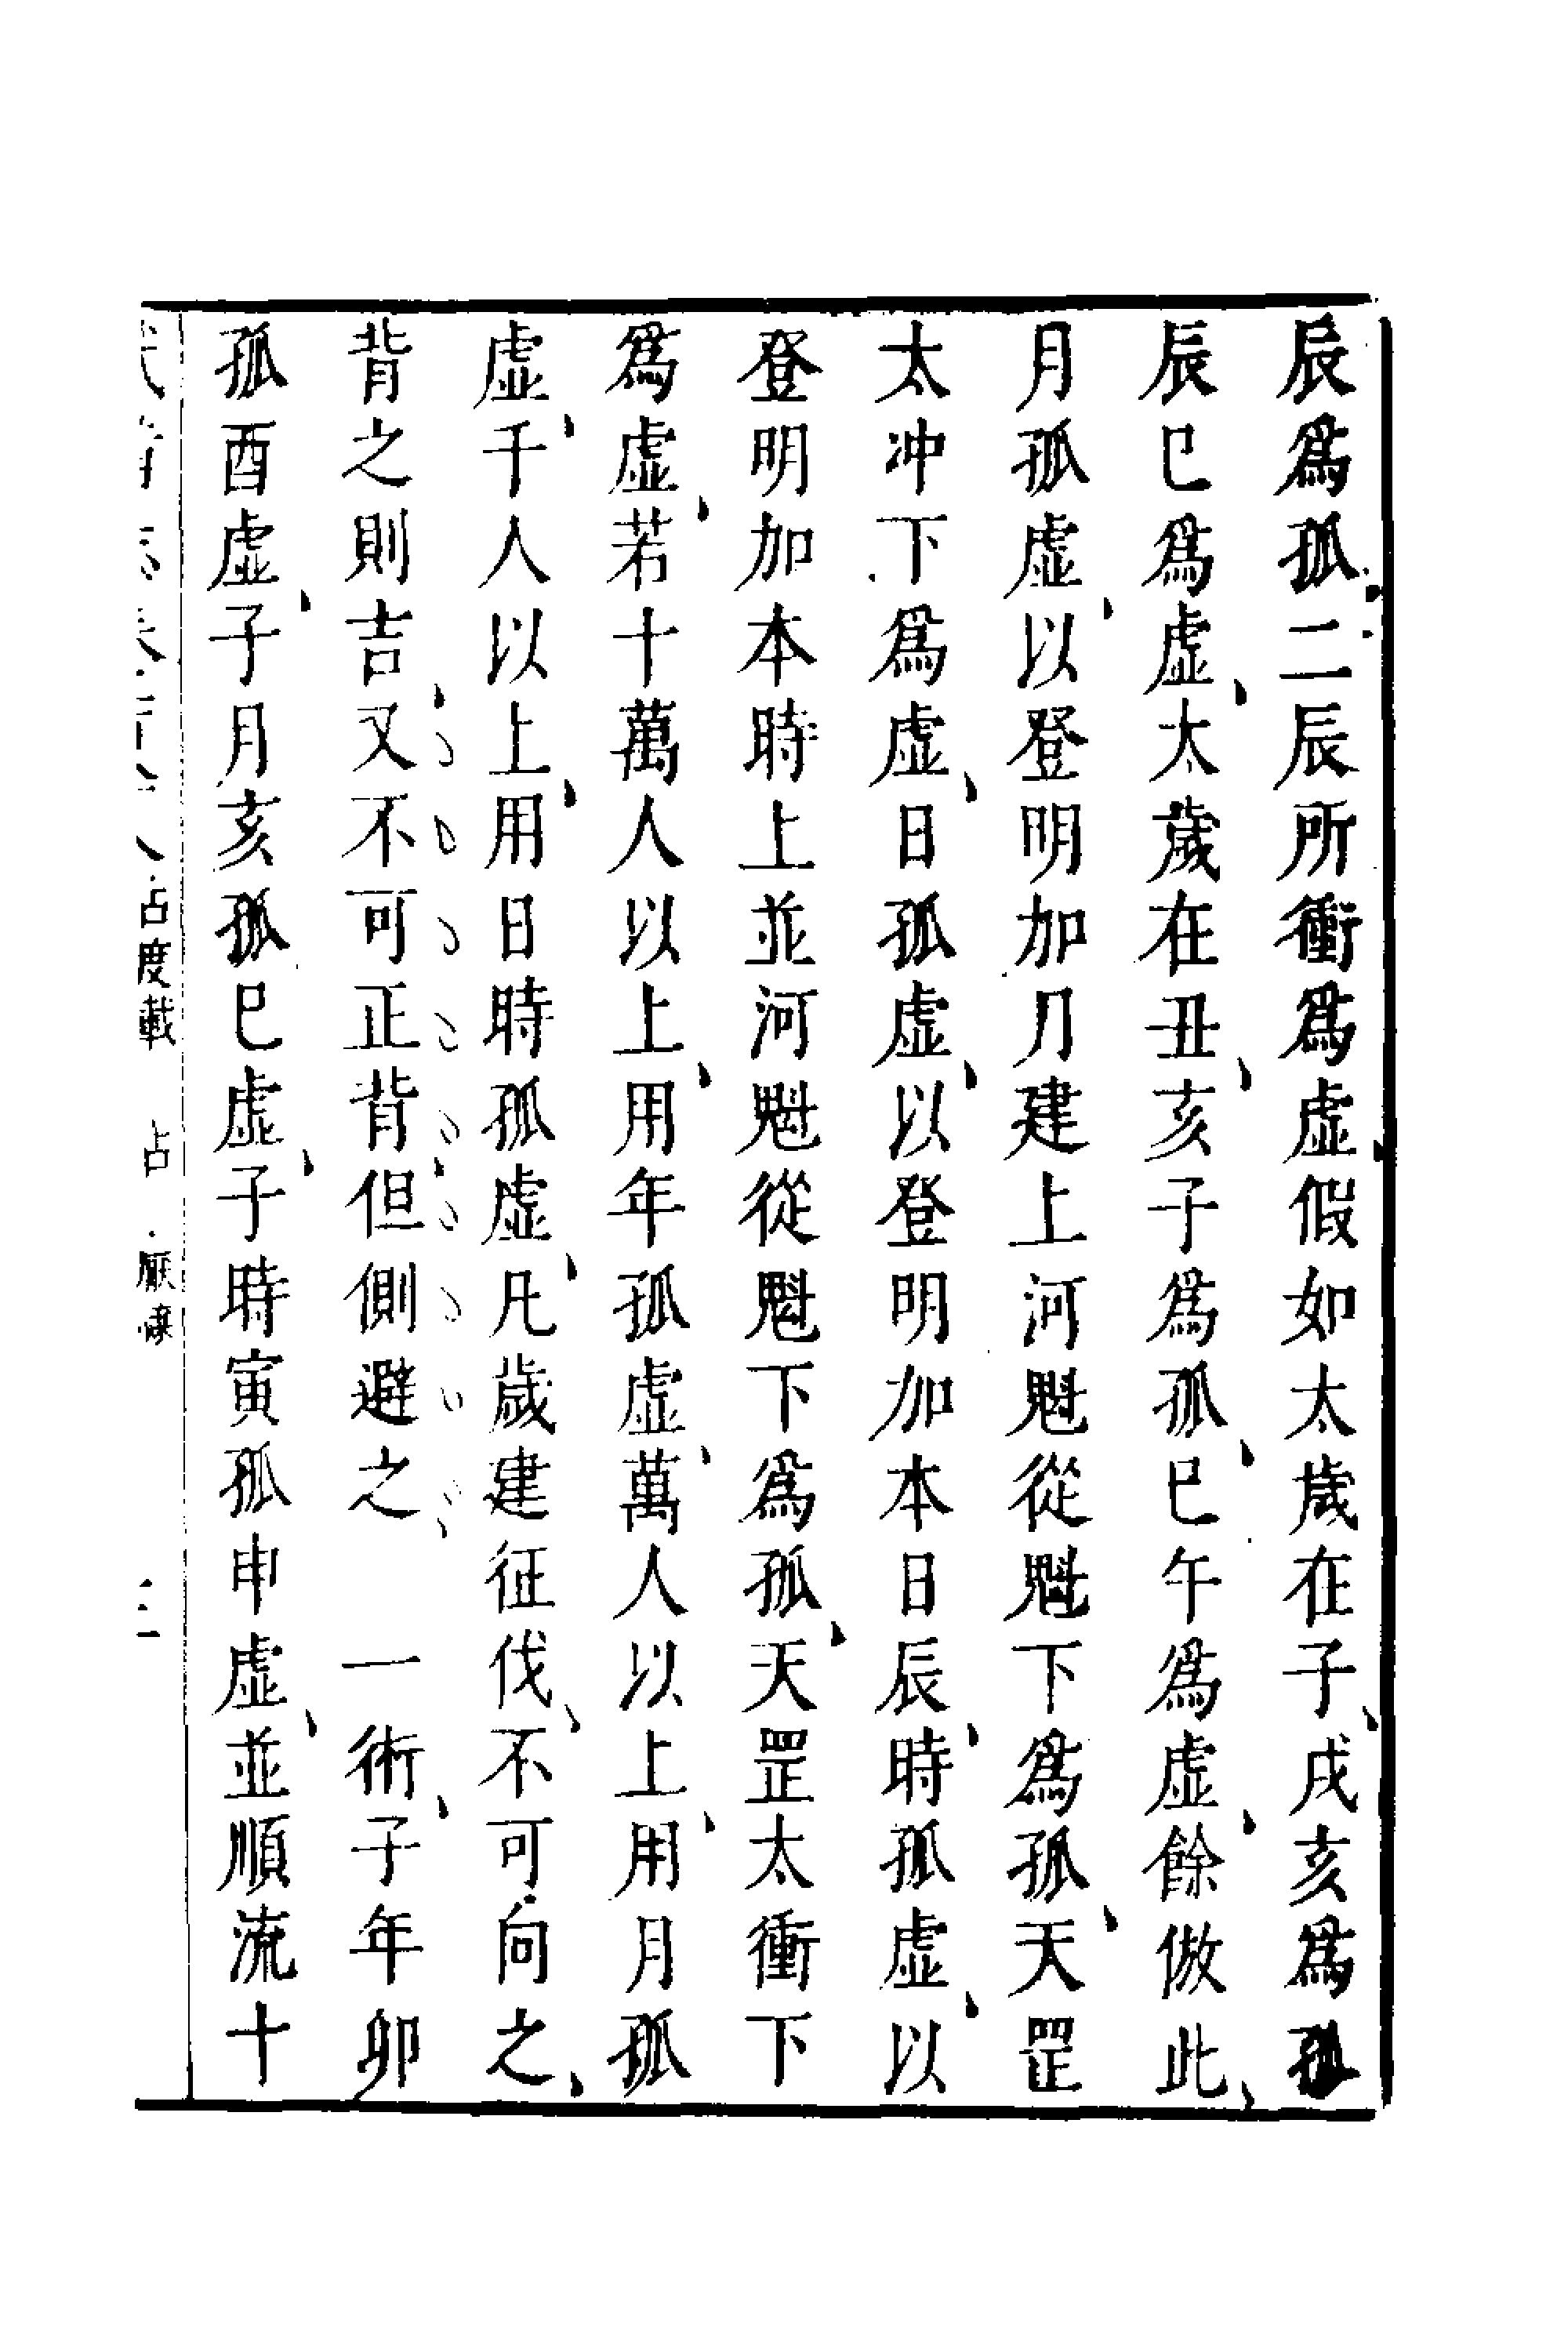 辰爲孤二辰所衝爲虛假如太歲在子戌亥爲孤
辰巳爲虛太歲在丑亥子爲孤巳午爲虛餘倣此
月孤虛以登明加月建上河魁從魁下爲孤天罡
太冲下爲虛日孤虛以登明加本日辰時孤虛以
登明加本時上並河魁從魁下爲孤天罡太衝下
爲虛若十萬人以上用年孤虛萬人以上用月孤
虛千人以上用日時孤虛凡歲建征伐不可向之
背之則吉又不可正背但側避之 一術子年卯
孤酉虛子月亥孤巳虛子時寅孤申虛並順流十
占度載 占